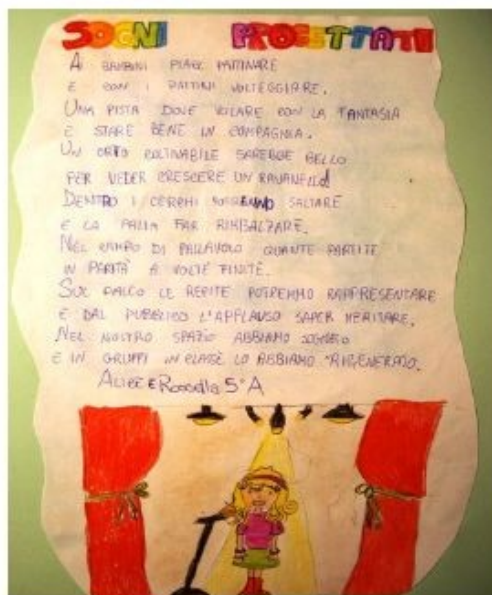 SOGNI PROGETTATI
AI BAMBINI PIACE PATTINARE
E CON I PATTINI VOLTEGGIARE.
UNA PISTA DOVE VOLARE CON LA FANTASIA
E STARE BENE IN COMPAGNIA.
UN ORTO COLTIVABILE SAREBBE BELLO
PER VEDER CRESCERE UN RAVANELLO!
DENTRO I CERCHI SALTARE
E LA PALLA FAR RIMBALZARE.
NEL CAMPO DI PALLAVOLO QUANTE PARTITE
IN PARITÀ A VOLTE FINITE.
SUL PALCO LE RECITE POTREMMO RAPPRESENTARE
E DAL PUBBLICO L'APPLAUSO SAPER MERITARE.
NEL NOSTRO SPAZIO ABBIAMO SOGNATO
E IN GRUPPI IN CLASSE LO ABBIAMO "RIGENERATO.
ALICE E Rossella 5°A